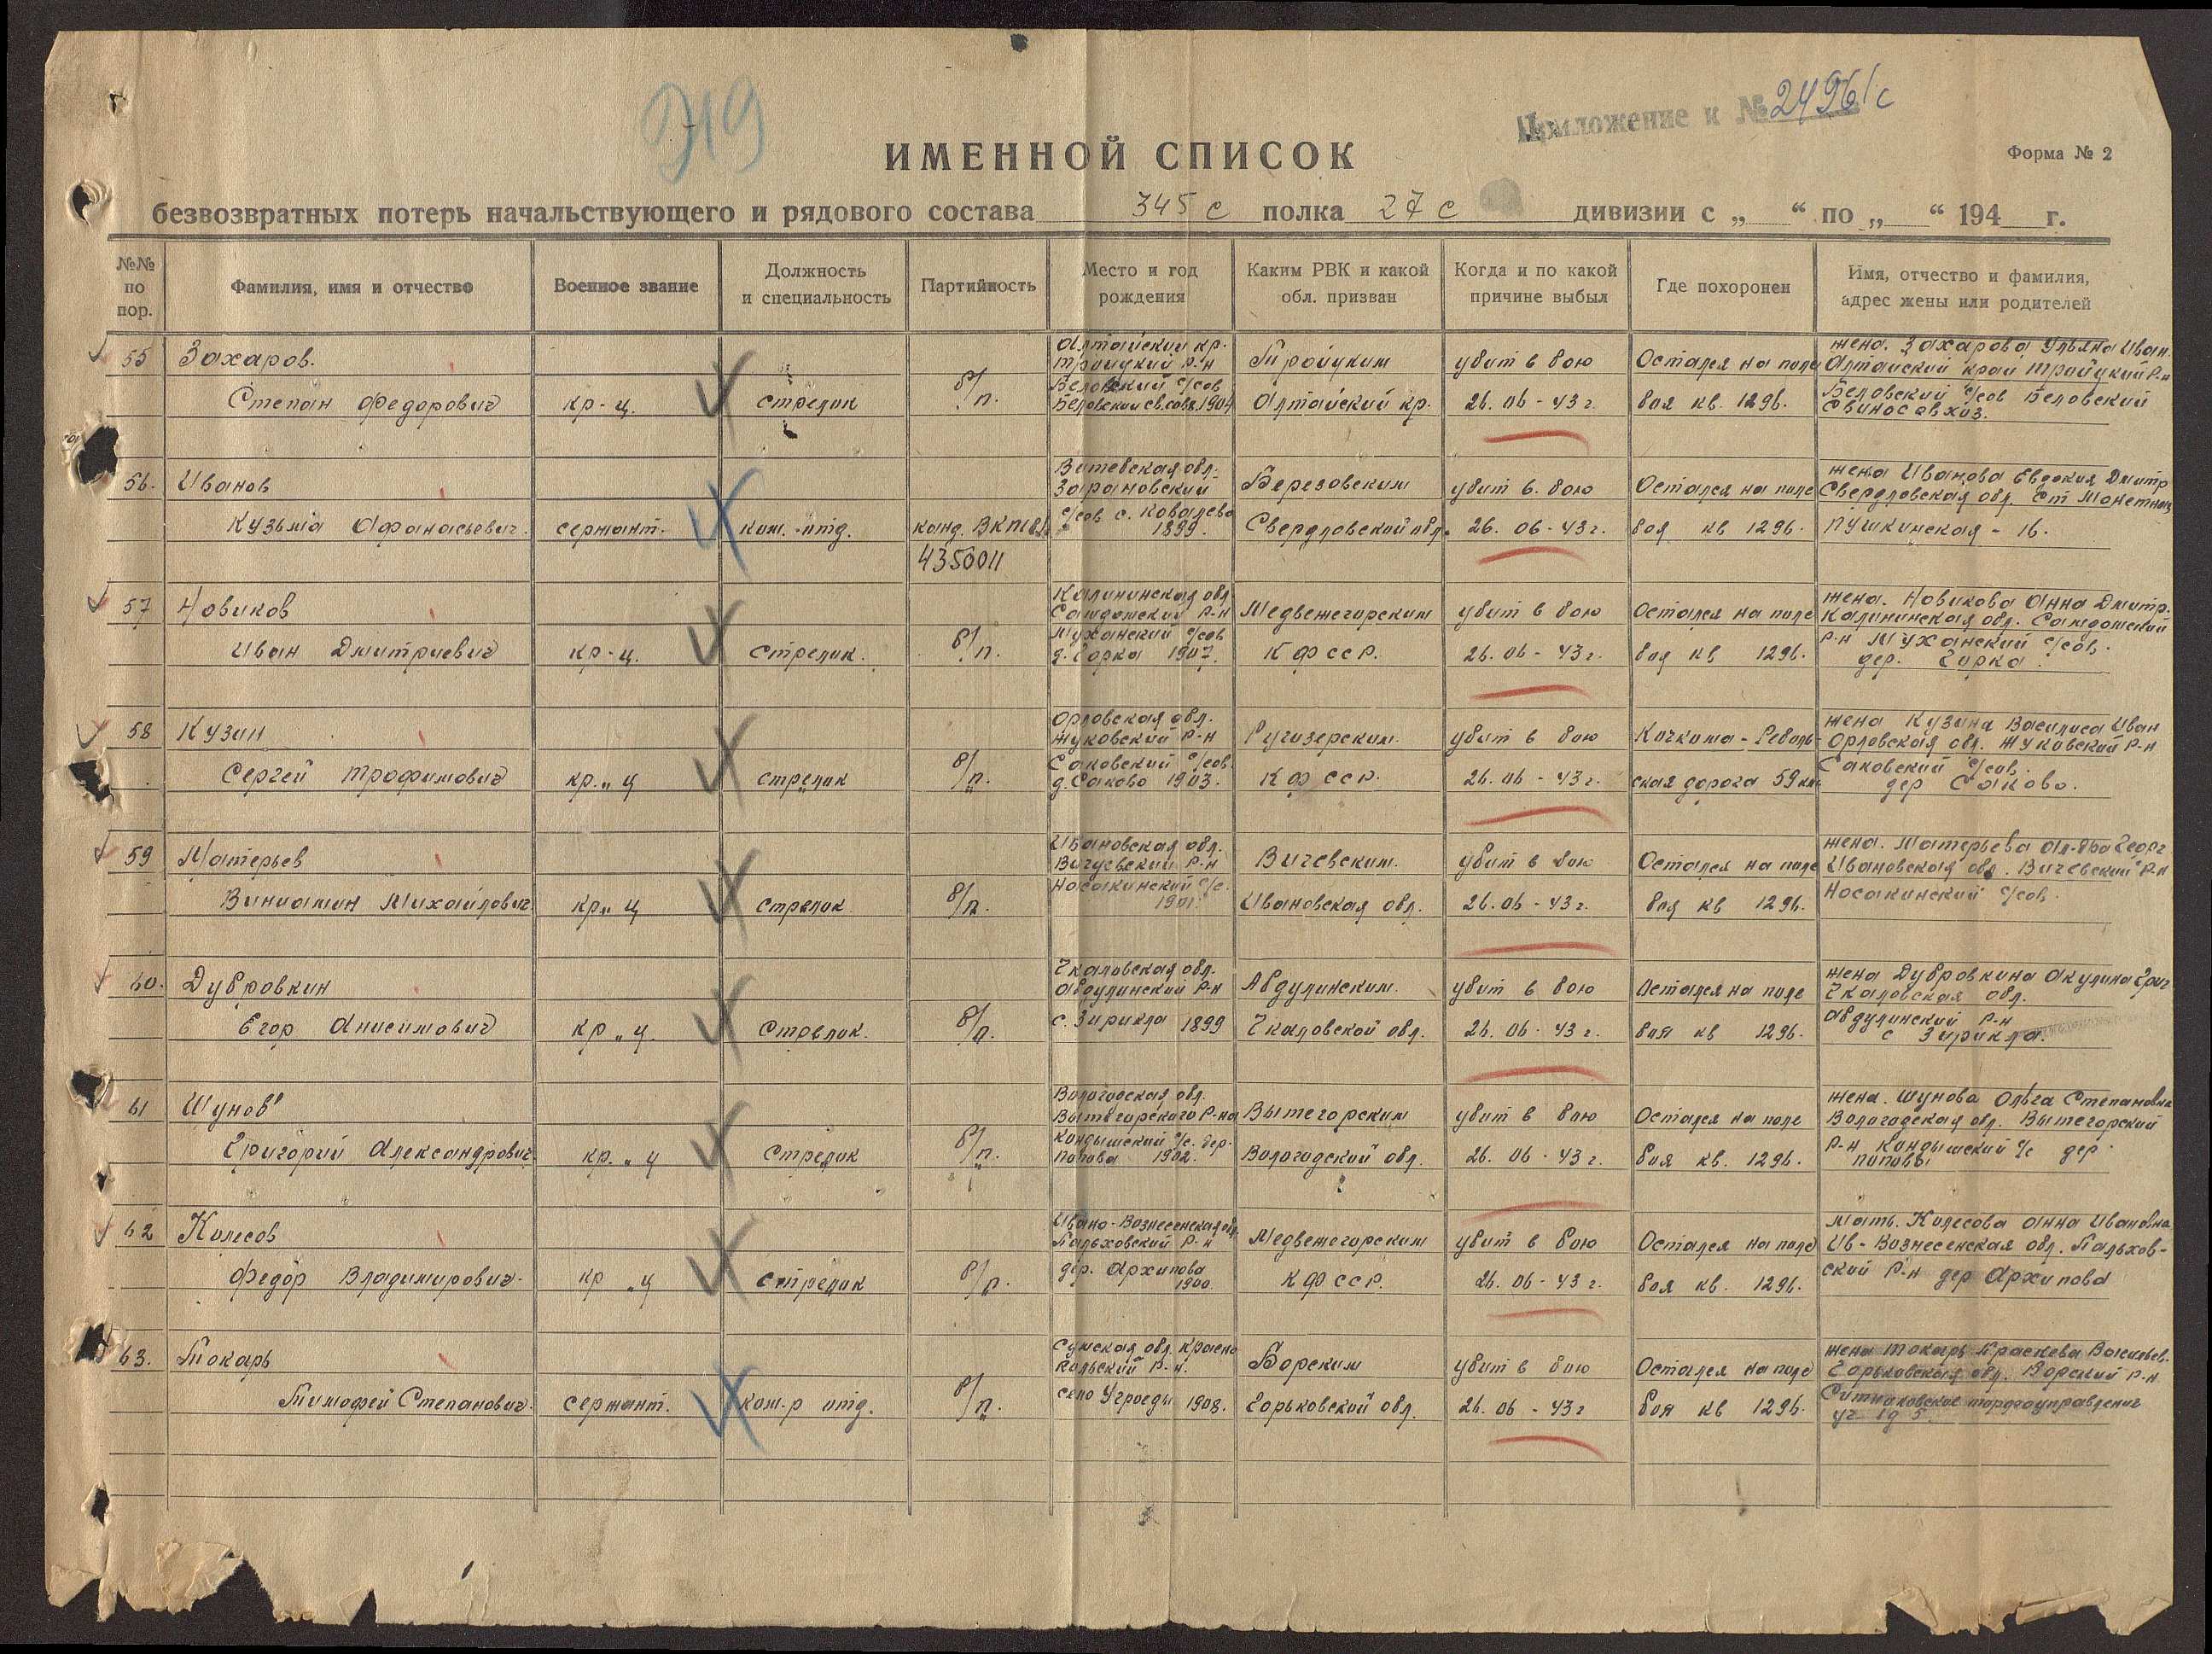 919
Приложение к № 2496/с
ИМЕННОЙ СПИСОК
Форма № 2
безвозвратных потерь начальствующего и рядового состава 345 с полка 27 с дивизии с „ “ по „ “ 194 г.
№№ по пор.
Фамилия, имя и отчество
Военное звание
Должность и специальность
Партийность
Место и год рождения
Каким РВК и какой обл. призван
Когда и по какой причине выбыл
Где похоронен
Имя, отчество и фамилия, адрес жены или родителей
55
Захаров.
Степан Федорович
кр-ц.
стрелок
б/п.
Алтайский кр.
Троицкий р-н
Беловский с/сов
Беловский св.совх. 1904
Троицким
Алтайский кр.
убит в бою
26.06-43 г.
Остался на поле
боя кв. 1296.
жена. Захарова Ульяна Иван.
Алтайский край Троицкий р-н
Беловский с/сов Беловский
Свиносовхоз.
56.
Иванов
Кузьма Афанасьевич.
сержант.
ком. отд.
канд. ВКП(б)
4350011
Витебская обл.
с/сов с. Ковалево
1899.
Березовским
Свердловской обл.
убит в. бою
26. 06-43 г.
Остался на поле
боя кв 1296.
жена Иванова Евдокия Дмитр
Свердловская обл. Ст Монетная
Пушкинская - 16.
57
Новиков
Иван Дмитриевич
кр-ц.
Стрелок.
б/п.
Калининская обл
Сандовский р-н
Муханский с/сов
д. Горка 1907.
Медвежегорским
К Ф ССР.
убит в бою
26.06-43 г.
Остался на поле
боя кв 1296.
жена. Новикова Анна Дмитр.
Калининская обл. Сандовский
р-н Муханский с/сов.
дер. Горка.
58
Кузин
Сергей Трофимович
кр.„ ц
стрелок
б/п.
Орловская обл.
Жуковский р-н
Саковский с/сов.
д. Саково 1903.
Ругозерским.
К Ф ССР.
убит в бою
26.06-43 г.
Кочкома-Реболь-
ская дорога 59 км
жена Кузина Василиса Иван
Орловская обл. Жуковский р-н
Саковский с/сов.
дер Саково.
59
Матерьев
Виниамин Михайлович
кр„ ц
стрелок
б/п.
Ивановская обл.
Вичугский р-н
Носакинский с/с.
1901.
Вичевским.
Ивановская обл.
убит в бою
26.06-43 г.
Остался на поле
боя кв 1296.
жена. Матерьева Георг
Ивановская обл. Вичевский р-н
Носакинский с/сов.
60.
Дубровкин
Егор Анисимович
кр „ ц.
Стрелок.
б/п.
Чкаловская обл.
Абдулинский р-н
с. Зирикла 1899
Абдулинским.
Чкаловской обл.
убит в бою
26.06-43 г.
Остался на поле
боя кв 1296.
жена Дубровкина Акулина Григ
Чкаловская обл.
Абдулинский р-н
с Зирикла.
61
Шунов
Григорий Александрович
кр. „ ц
Стрелок
б/п.
Вологодская обл.
Вытегорского р-на
Кондышский с/с. дер.
Попова 1902.
Вытегорским
Вологодской обл.
убит в бою
26. 06-43 г.
Остался на поле
боя кв. 1296.
жена. Шунова Ольга Степановна
Вологодская обл. Вытегорский
р-н Кондышский с/с дер.
Поповы
62
Колесов
Федор Владимирович.
кр „ц
стрелок
б/п.
Ивано-Вознесенская обл.
Пальховский р-н
дер. Архипова
1900.
Медвежегорским
К Ф ССР.
убит в бою
26.06-43 г.
Остался на поле
боя кв. 1296.
Мать. Колесова Анна Ивановна
Ив-Вознесенская обл. Пальхов-
ский р-н дер Архипова
63.
Токарь
Тимофей Степанович.
сержант.
ком-р отд.
б/п.
Сумская обл. Красно
польский р-н.
село Угроеды 1908.
Борским
Горьковской обл.
убит в бою
26. 06-43 г
Остался на поле
боя кв 1296.
жена Токарь Праскева Васильев.
Горьковская обл. Борский р-н
Ситниковское торфоуправление